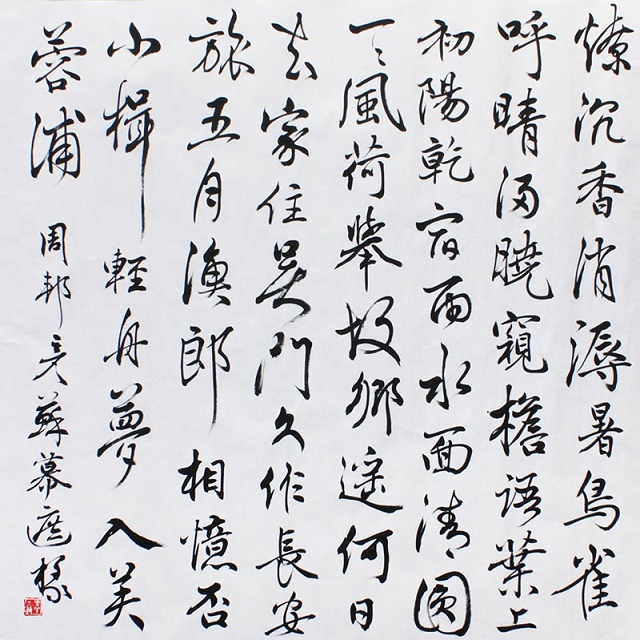 燎沉香消溽暑鳥雀
呼晴侵曉窺檐語葉上
初陽乾宿雨水面清圓
一一風荷舉故鄉遙何日
去家住吳門久作長安
旅五月漁郎相憶否
小楫輕舟夢入芙
蓉浦 周邦彥蘇幕遮